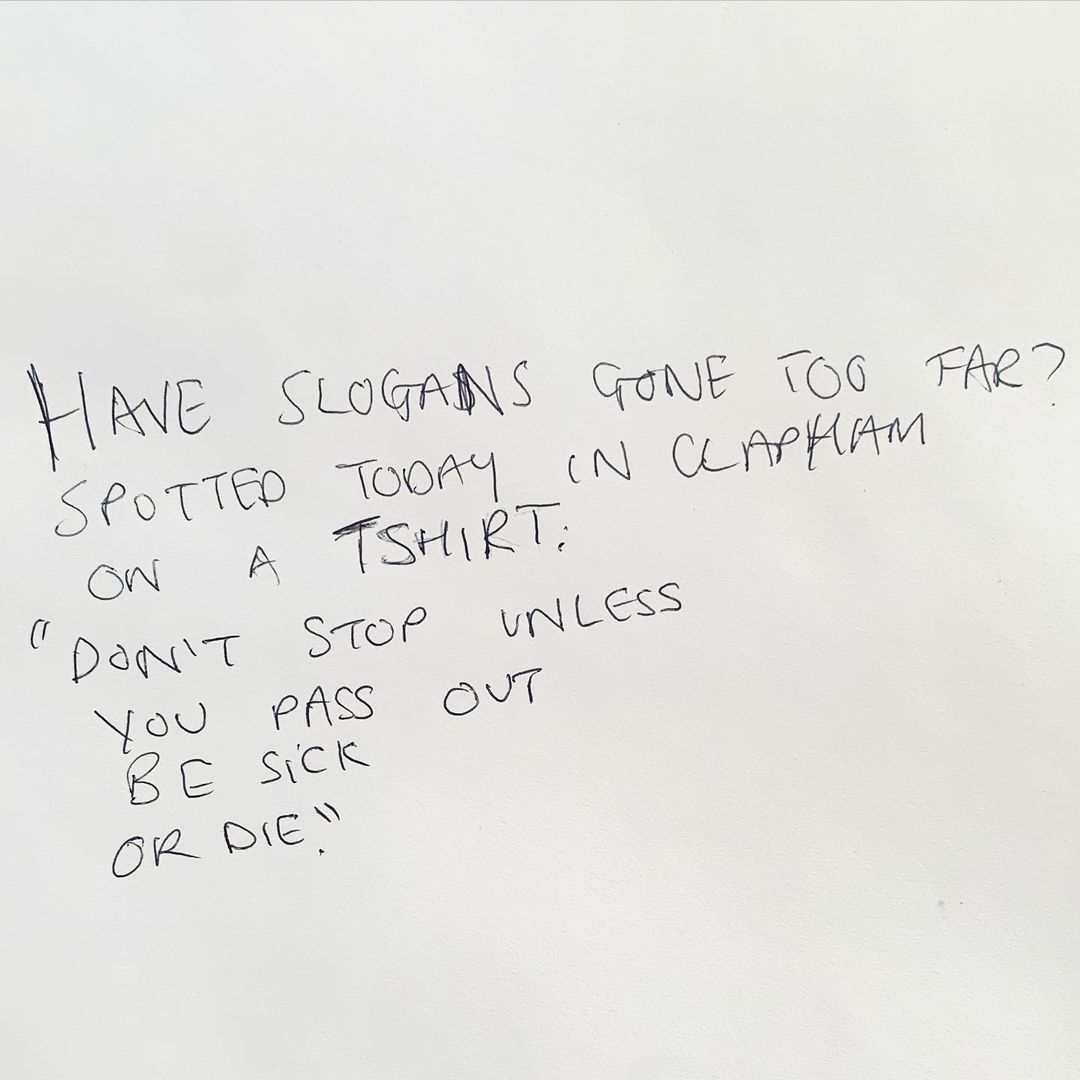 HAVE SLOGANS GONE TOO FAR?
SPOTTED TODAY IN CLAPHAM
ON A TSHIRT:
"DON'T STOP UNLESS
YOU PASS OUT
BE SICK
OR DIE."